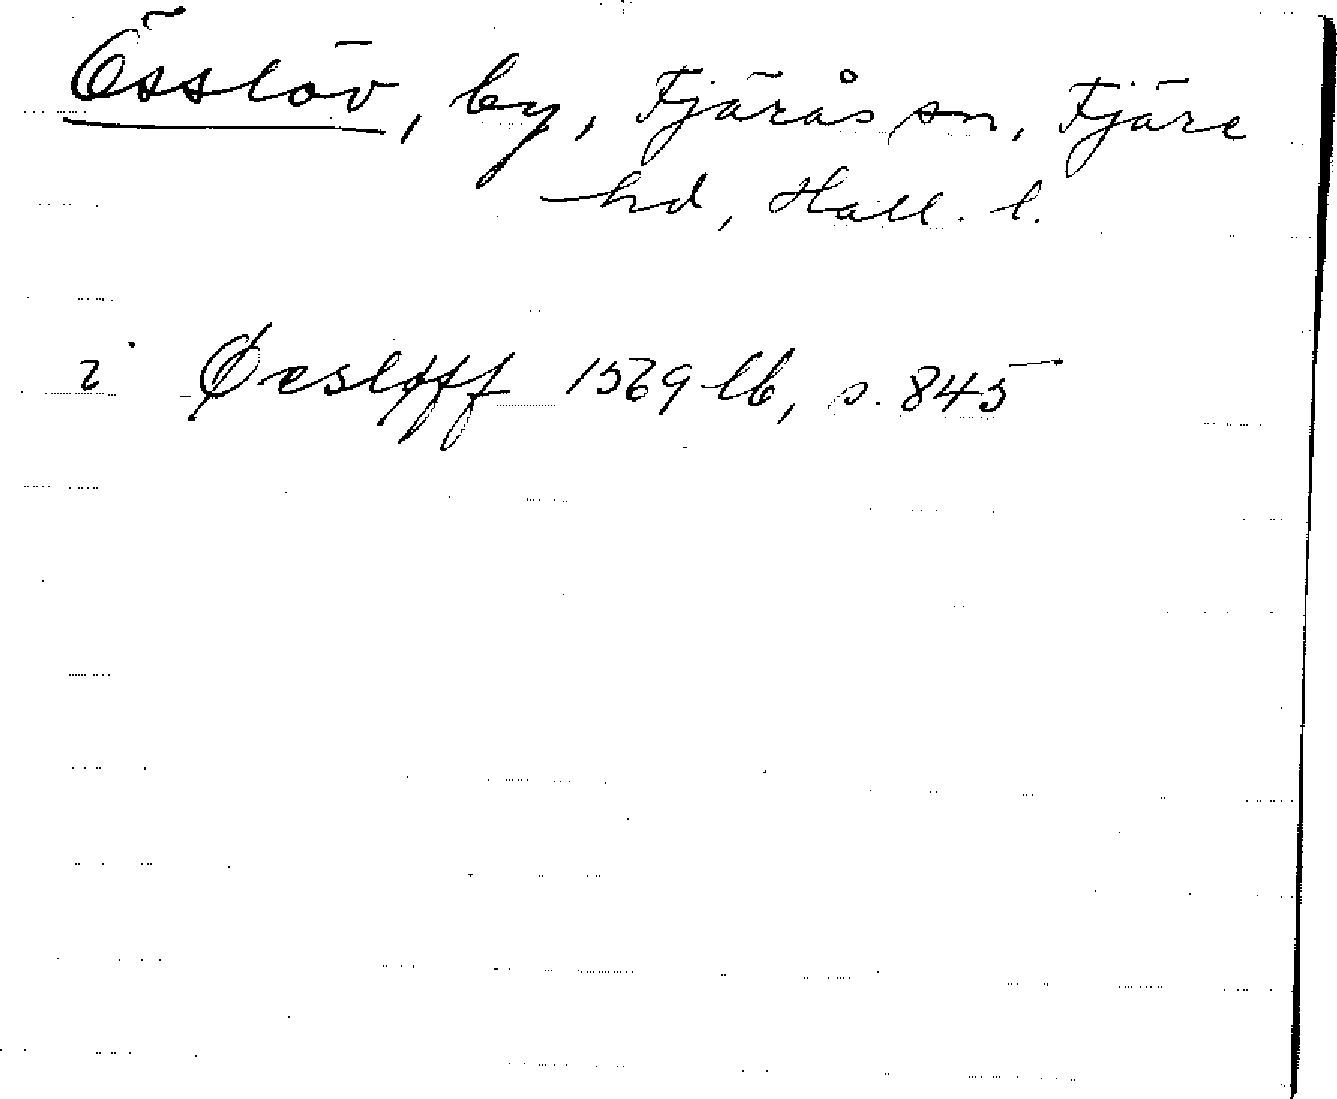 Össlöv, by, Fjärås sn, Fjäre
hd, Hall. l.
i Øesløff 1569 lb, s. 845